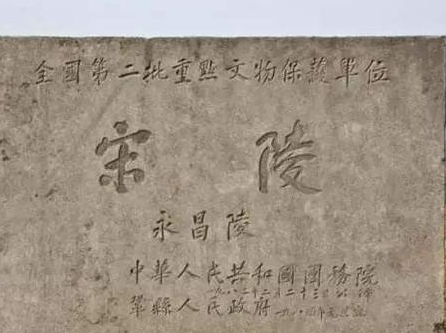 全國第二批重點文物保護單位
宋陵
永昌陵
中華人民共和國國務院
一九八二年二月二十三日公佈
鞏縣人民政府